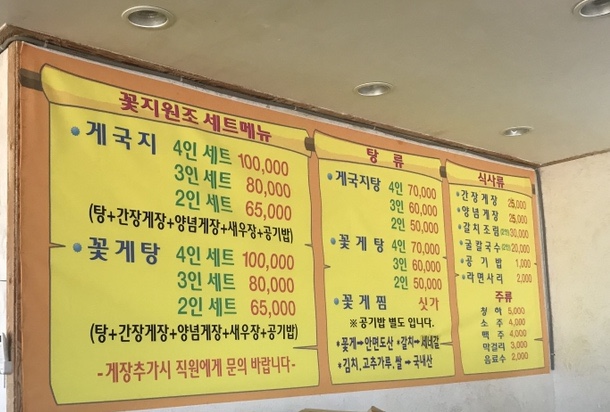 꽃지원조 세트메뉴
게국지 4인 세트 100,000
3인 세트 80,000
2인 세트 65,000
(탕+간장게장+양념게장+새우장+공기밥)
꽃게탕 4인 세트 100,000
3인 세트 80,000
2인 세트 65,000
(탕+간장게장+양념게장+새우장+공기밥)
-게장추가시 직원에게 문의 바랍니다-
탕 류
게국지탕 4인 70,000
3인 60,000
2인 50,000
꽃게탕 4인 70,000
3인 60,000
2인 50,000
꽃게찜 싯가
※ 공기밥 별도 입니다.
•꽃게➡안면도산 •갈치➡세네갈
•김치,고추가루,쌀➡국내산
식사류
간장게장 25,000
양념게장 25,000
갈치조림 30,000
굴칼국수 20,000
공기밥 1,000
라면사리 2,000
주류
청하 5,000
소주 4,000
맥주 4,000
막걸리 3,000
음료수 2,000